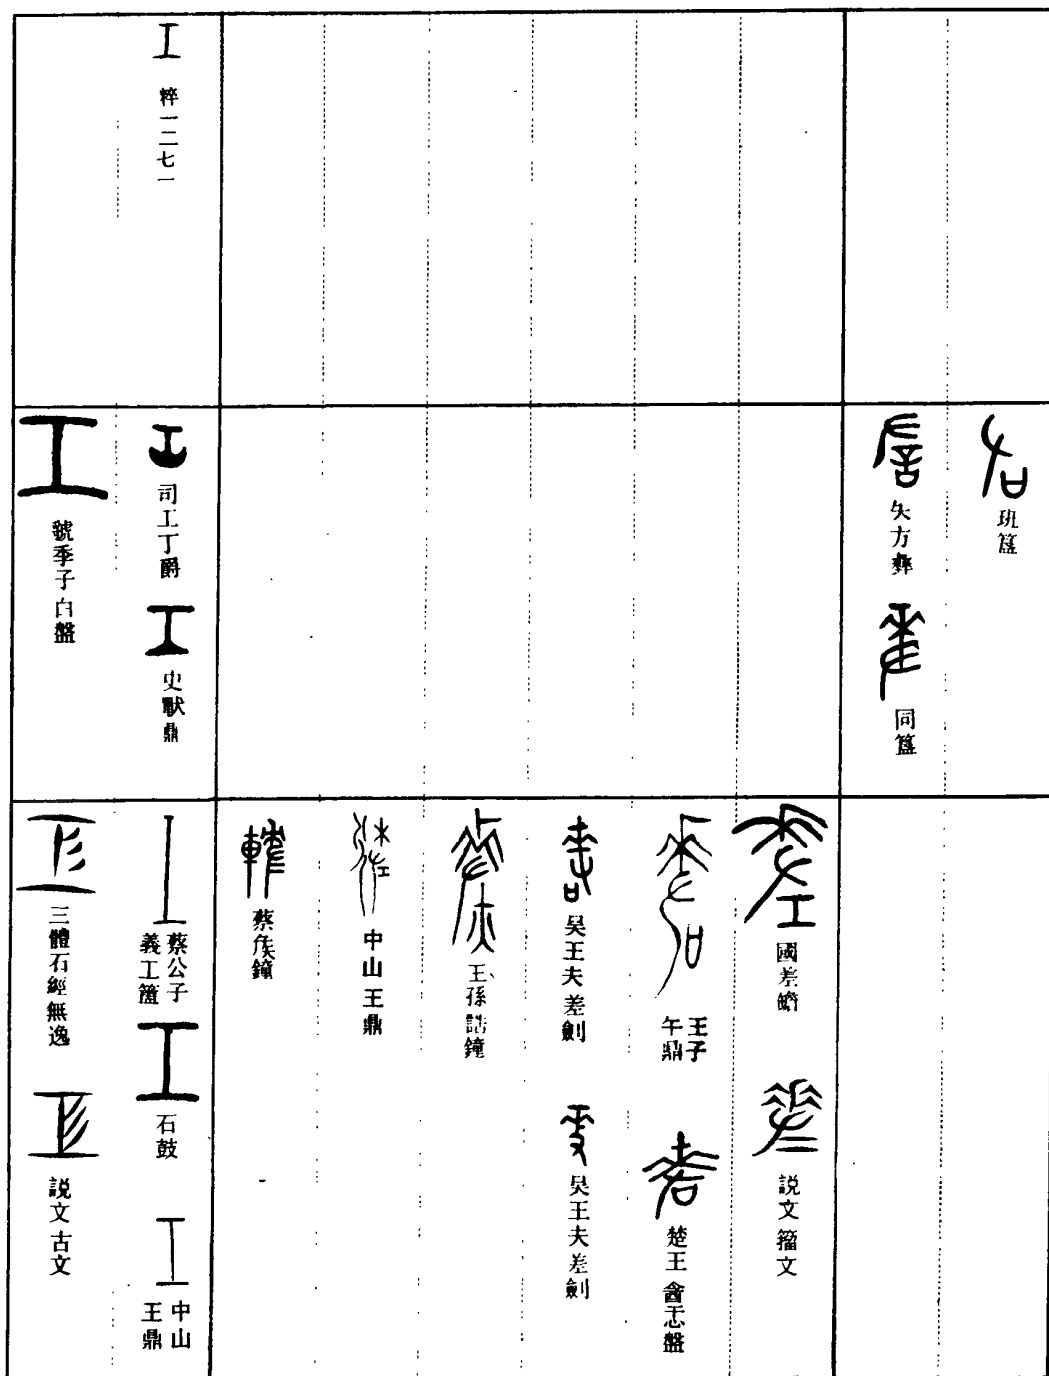 班簋
矢方彝
同簋
國差𦉜
説文籀文
王子
午鼎
楚王酓忎盤
吴王夫差劍
吴王夫差劍
王孫誥鐘
中山王鼎
蔡侯鐘
工
粹一二七一
司工丁爵
工
史獸鼎
工
蔡公子
義工簠
工
石鼓
工
中山
王鼎
工
虢季子白盤
三體石經無逸
説文古文